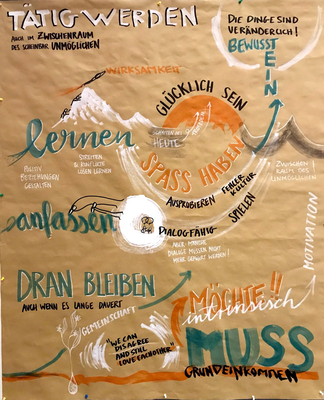 TÄTIG WERDEN
AUCH IM ZWISCHENRAUM
DES SCHEINBAR UNMÖGLICHEN
DIE DINGE SIND
VERÄNDERLICH!
BEWUSST
SEIN
WIRKSAMKEIT
GLÜCKLICH SEIN
HEUTE
SPASS HABEN
AUSPROBIEREN
FEHLER
KULTUR
SPIELEN
lernen
STREITEN
& KONFLIKTE
LÖSEN LERNEN
BEZIEHUNGEN
GESTALTEN
ZWISCHEN
RAUM DES
UNMÖGLICHEN
anfassen
DIALOGFÄHIG
ABER: MANCHE
DIALOGE MÜSSEN NICHT
MEHR GEFÜHRT WERDEN!
MOTIVATION
DRAN BLEIBEN
AUCH WENN ES LANGE DAUERT
GEMEINSCHAFT
"WE CAN
DISAGREE
AND STILL
LOVE EACH OTHER"
MÖCHTE!!
intrinsisch
MUSS
GRUNDEINKOMMEN